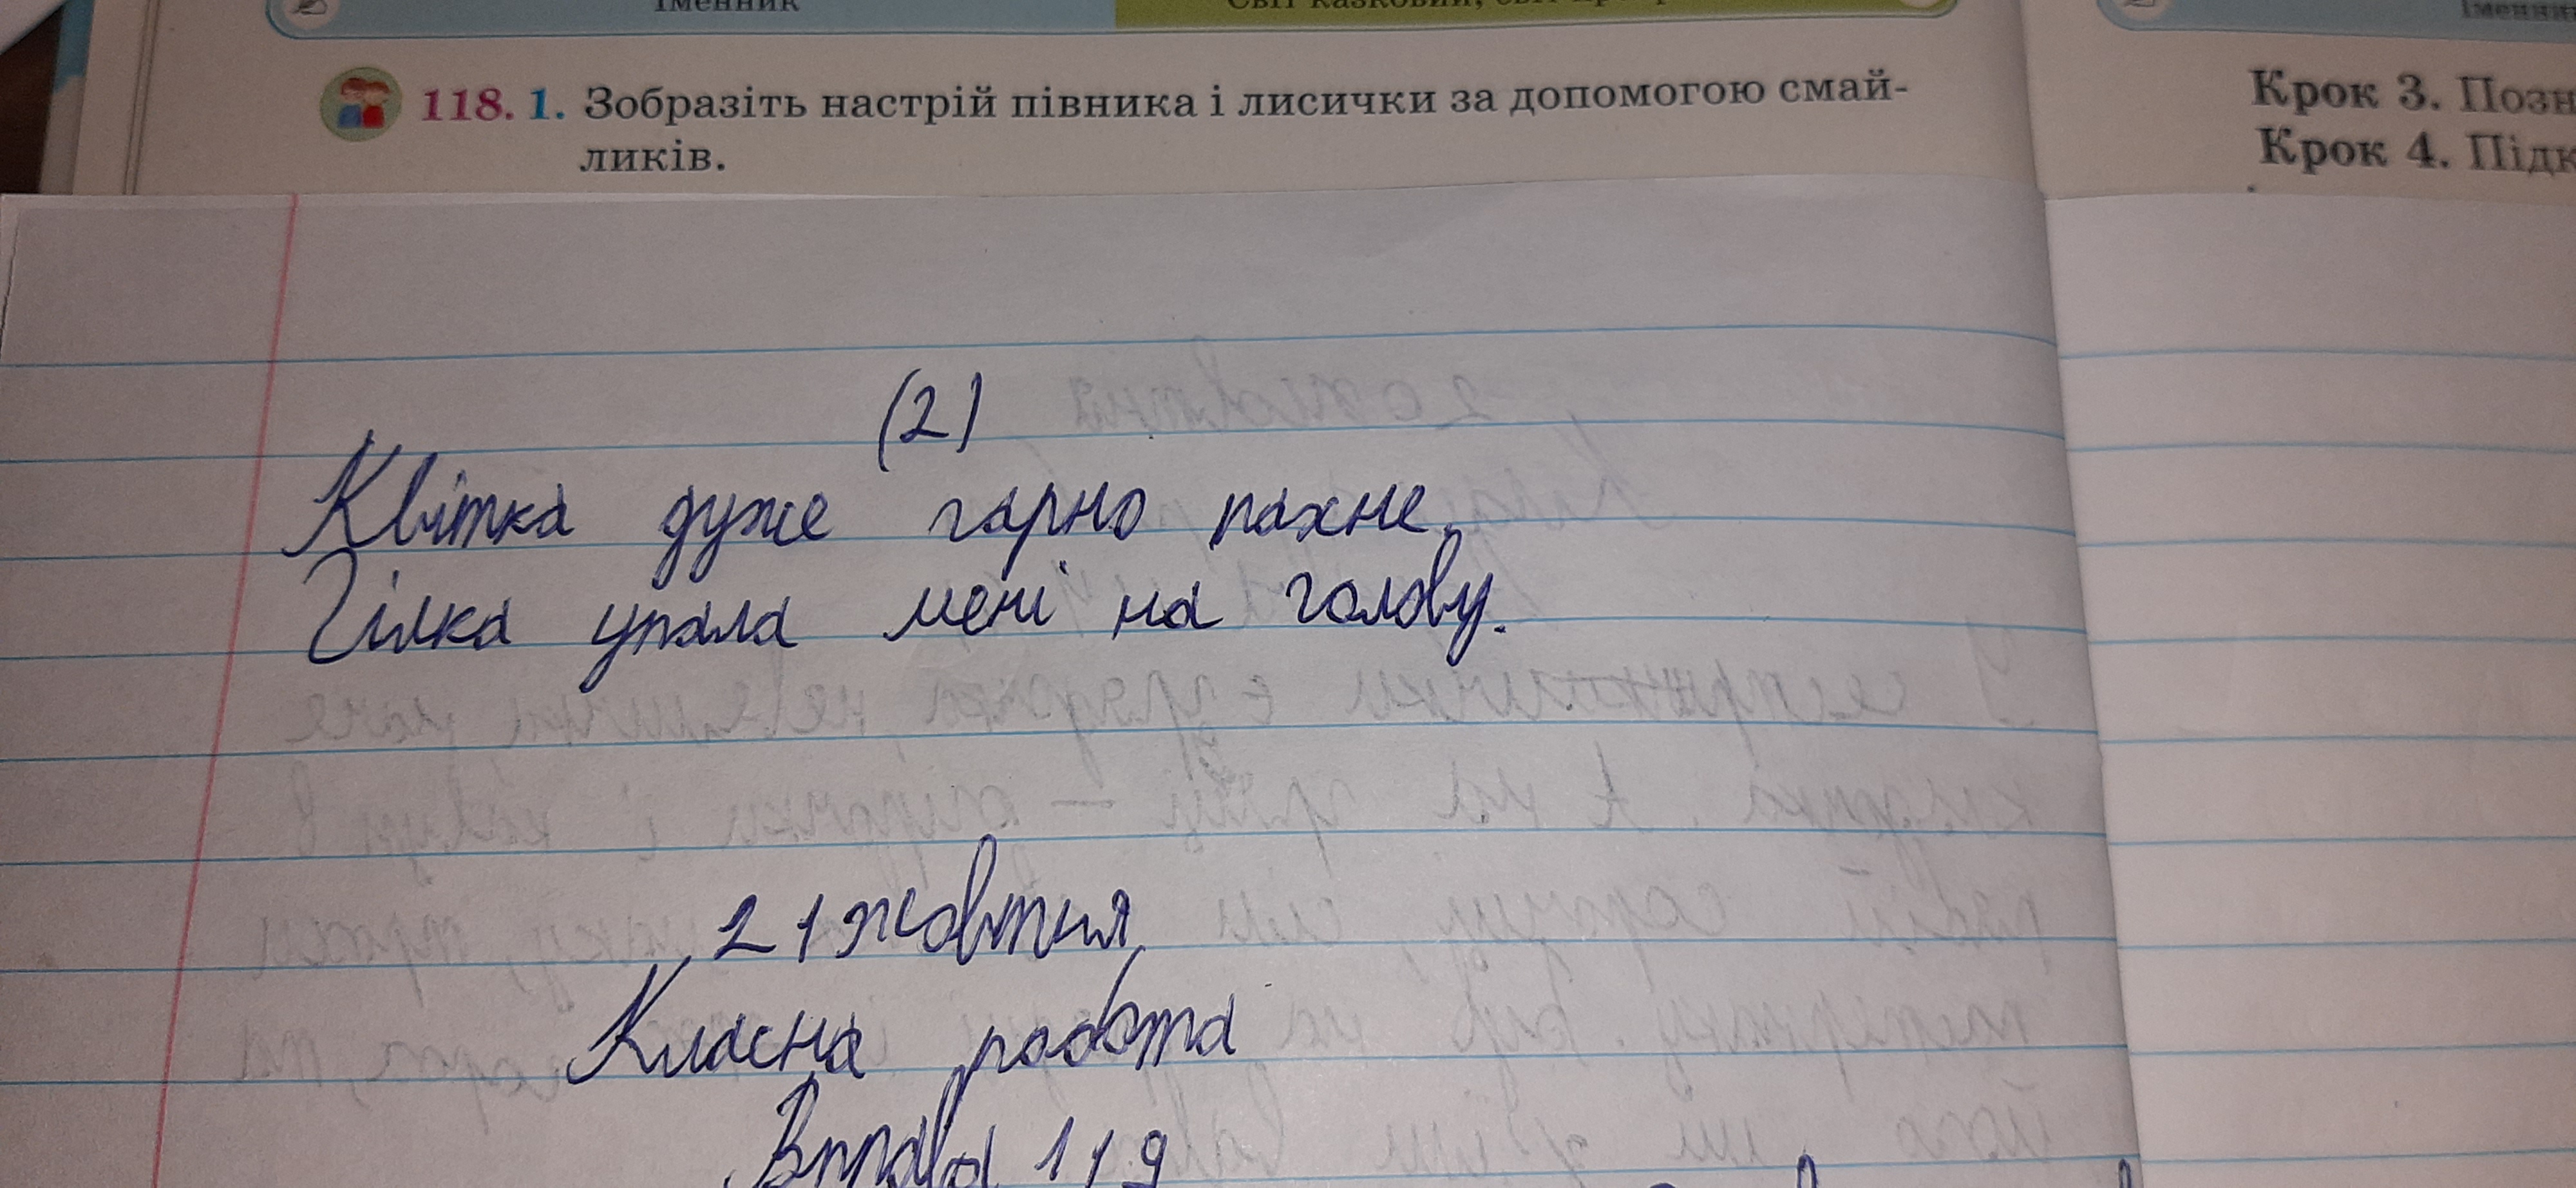 Іменник
118. 1. Зобразіть настрій півника і лисички за допомогою смай-
ликів.
Крок 3.
Крок 4.
(2)
Квітка дуже гарно пахне.
Гілка упала мені на голову.
21 жовтня
Класна робота
Вправа 119